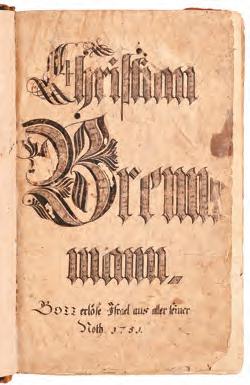 Christian
Brenne
mann.
Gott erlöse Israel aus aller seiner
Noth. 1751.